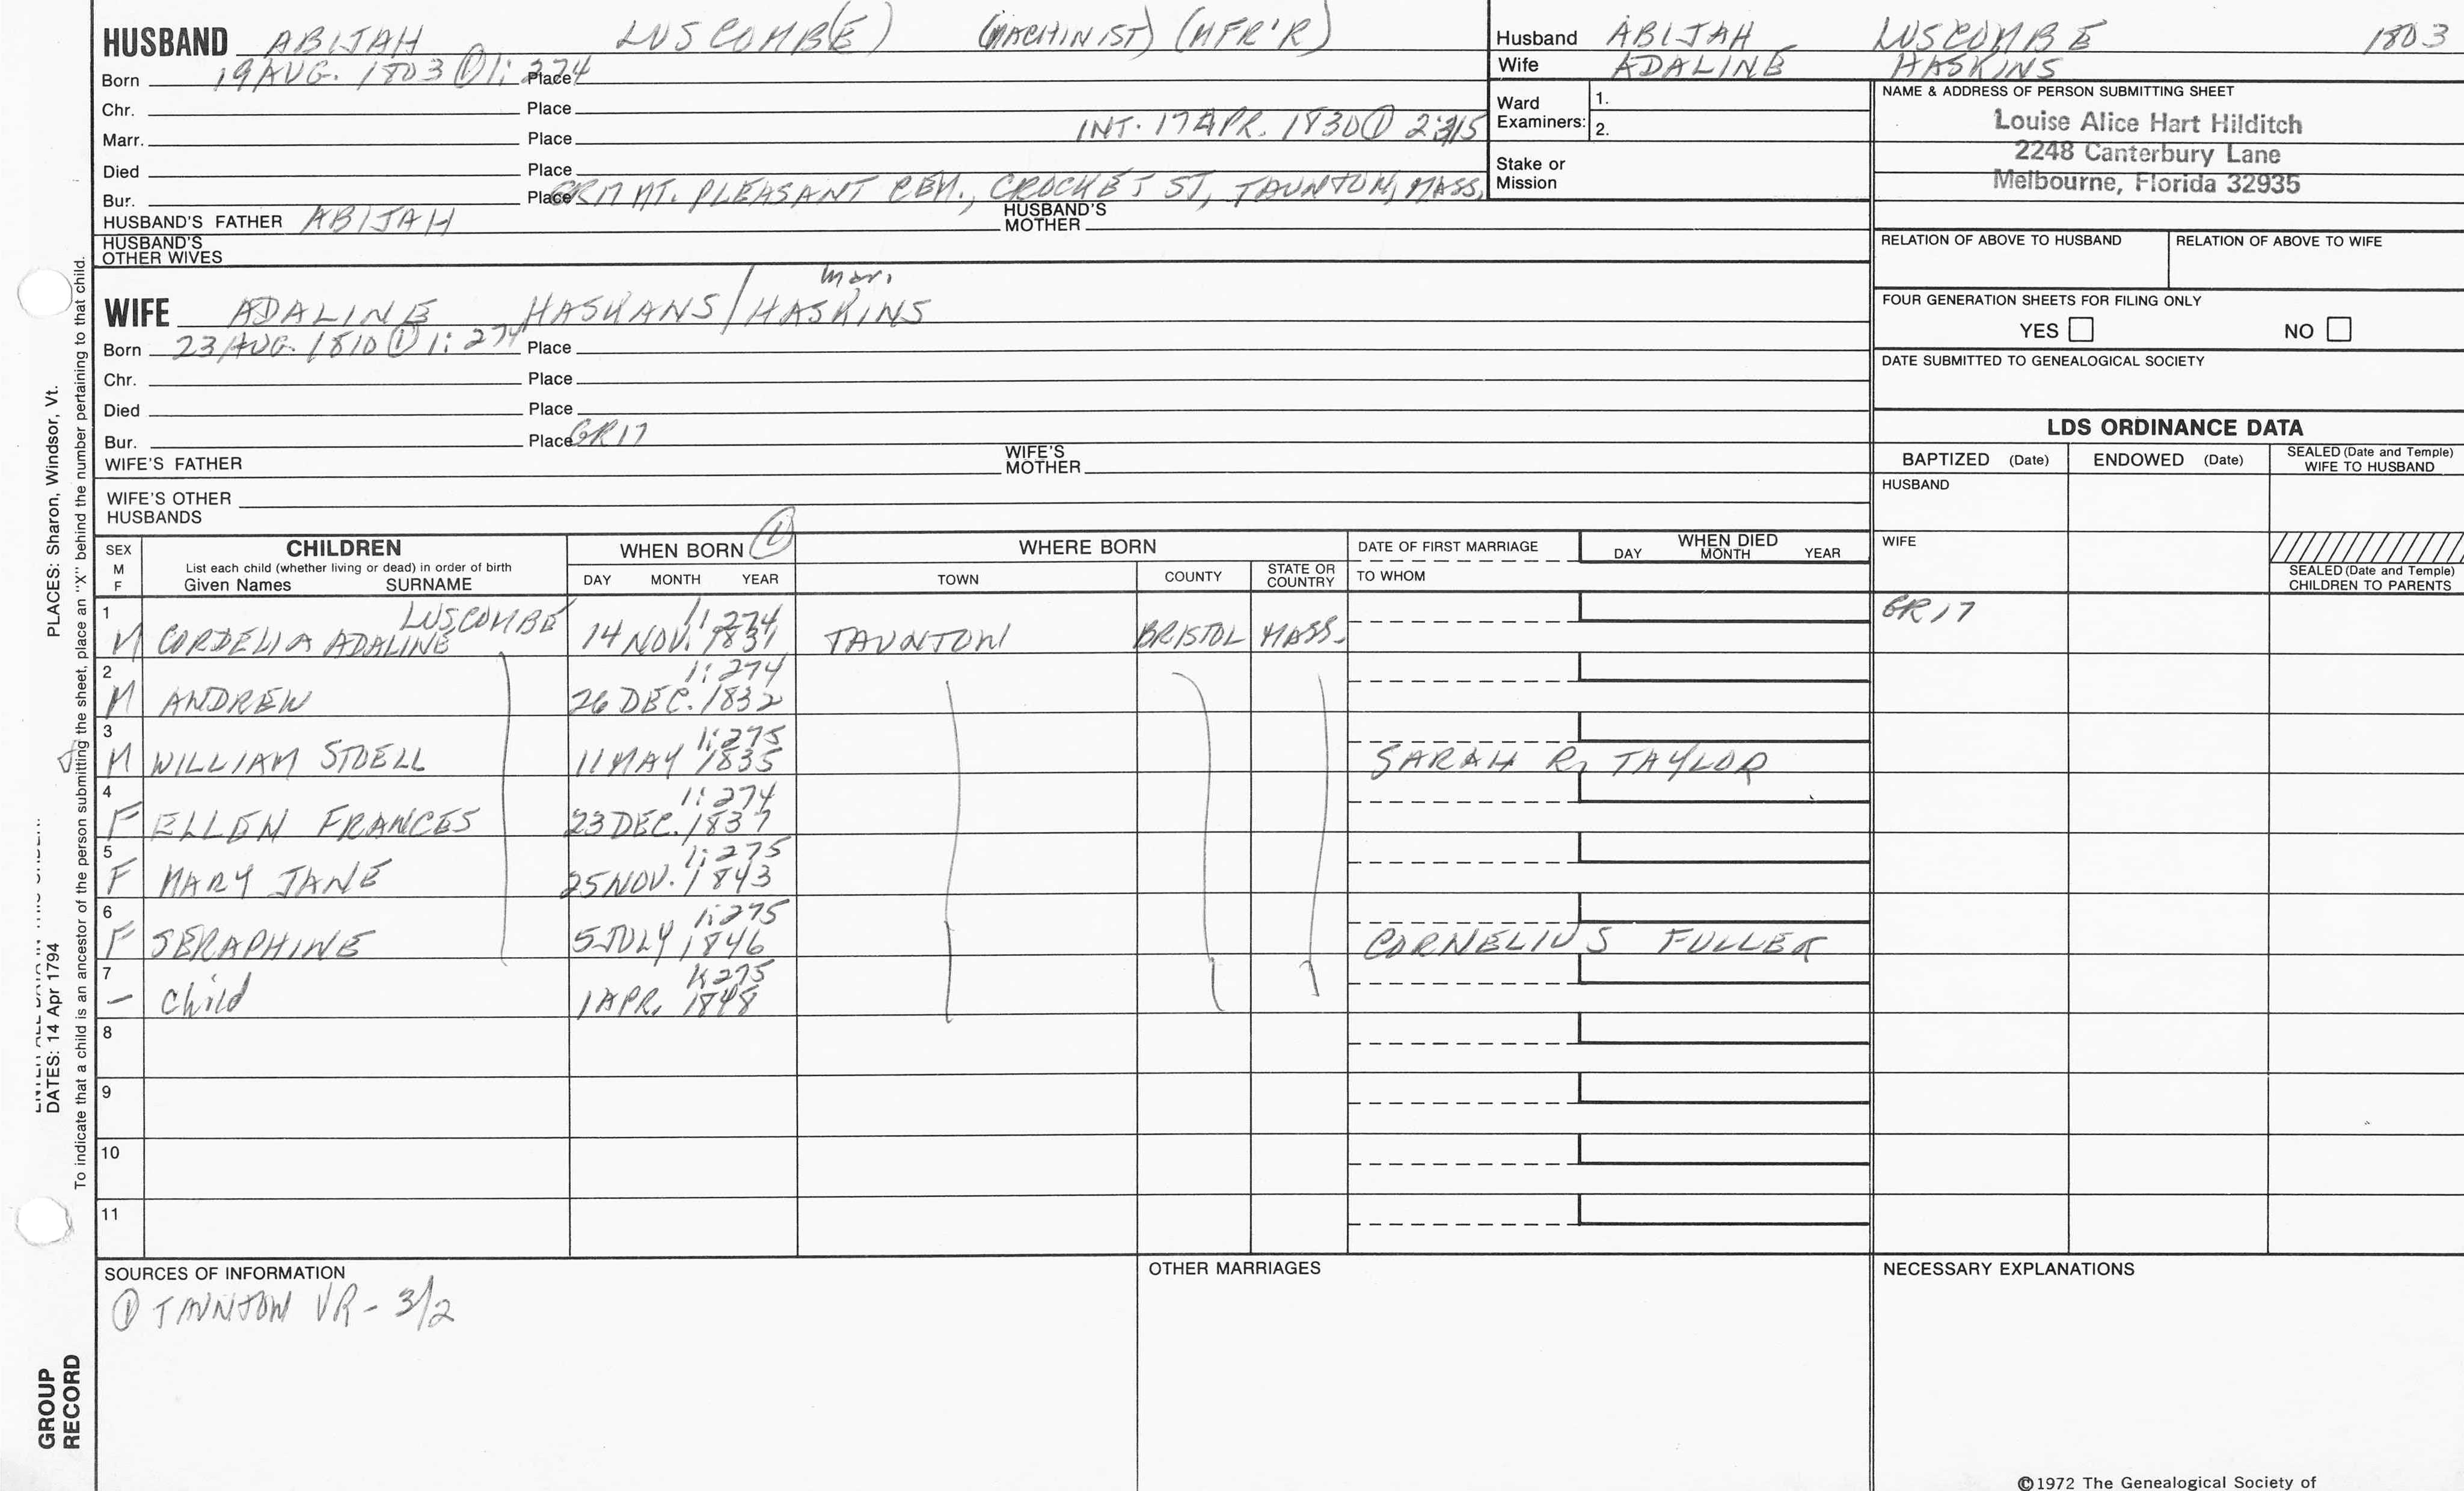 HUSBAND ABIJAH LUSCOMB(E) (MACHINIST) (MFR'R)
Born 19 AUG. 1803 ① 1: 274 Place
Chr. Place
Marr. Place INT. 17 APR. 1830 ① 2:315
Died Place
Bur. Place GR17 MT. PLEASANT CEM., CROCKET ST, TAUNTON, MASS.
HUSBAND'S FATHER ABIJAH HUSBAND'S MOTHER
HUSBAND'S OTHER WIVES
Husband ABIJAH LUSCOMBE 1803
Wife ADALINE HASKINS
Ward Examiners: 1.
2.
Stake or Mission
NAME & ADDRESS OF PERSON SUBMITTING SHEET
Louise Alice Hart Hilditch
2248 Canterbury Lane
Melbourne, Florida 32935
RELATION OF ABOVE TO HUSBAND RELATION OF ABOVE TO WIFE
FOUR GENERATION SHEETS FOR FILING ONLY
YES NO
DATE SUBMITTED TO GENEALOGICAL SOCIETY
mar.
WIFE ADALINE HASKANS/HASKINS
Born 23 AUG. 1810 ① 1: 274 Place
Chr. Place
Died Place
Bur. Place GR17
WIFE'S FATHER WIFE'S MOTHER
WIFE'S OTHER HUSBANDS
LDS ORDINANCE DATA
BAPTIZED (Date) ENDOWED (Date) SEALED (Date and Temple) WIFE TO HUSBAND
HUSBAND
WIFE
SEALED (Date and Temple) CHILDREN TO PARENTS
SEX M F CHILDREN WHEN BORN ① WHERE BORN DATE OF FIRST MARRIAGE WHEN DIED
List each child (whether living or dead) in order of birth
Given Names SURNAME DAY MONTH YEAR TOWN COUNTY STATE OR COUNTRY TO WHOM DAY MONTH YEAR
1 LUSCOMBE 1: 274
M CORDELIA ADALINE 14 NOV. 1831 TAUNTON BRISTOL MASS. GR17
2 1: 274
M ANDREW 26 DEC. 1832
3 1: 275
M WILLIAM STOELL 11 MAY 1835 SARAH R. TAYLOR
4 1: 274
F ELLEN FRANCES 23 DEC. 1837
5 1: 275
F MARY JANE 25 NOV. 1843
6 1: 275
F SERAPHINE 5 JULY 1846 CORNELIUS FULLER
7 1: 275
– Child 1 APR. 1848
8
9
10
11
SOURCES OF INFORMATION
① TAUNTON VR - 3/2
OTHER MARRIAGES
NECESSARY EXPLANATIONS
©1972 The Genealogical Society of
PLACES: Sharon, Windsor, Vt.
DATES: 14 Apr 1794
To indicate that a child is an ancestor of the person submitting the sheet, place an "X" behind the number pertaining to that child.
GROUP RECORD